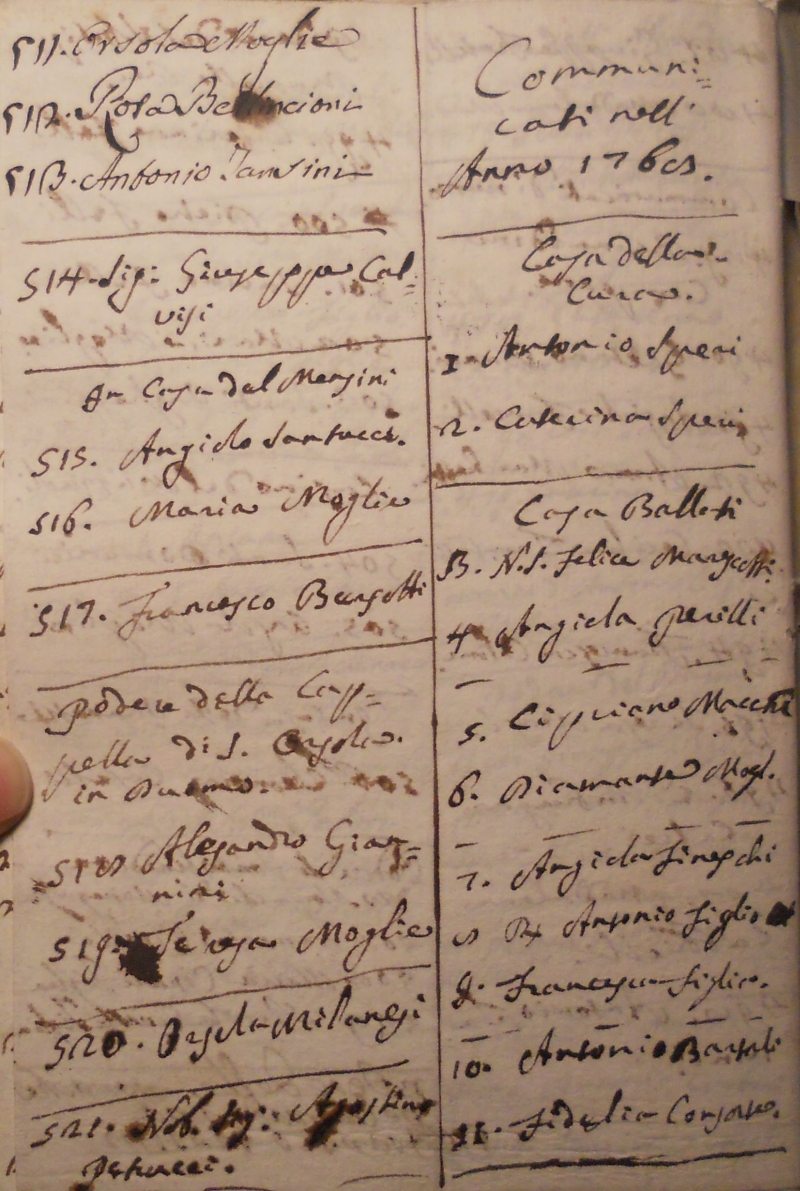 511. Orsola Moglie
512. Rosa
513. Antonio
514. Sig: Giuseppe Cal=
visi
In Casa del Mensini
515. Angiolo Santucci.
516. Maria Moglie
517. Francesco
Podere della Cap=
pella di S. Orsola.
in Duomo.
518 Alesandro Gian=
nini
519. Teresa Moglie
520. Orsola Milanesi
521. Nob. Sig: Agostino
Petrucci.
Communi=
cati nell'
Anno 1768.
Casa della
Cura.
1. Antonio Speri
2. Caterina Speri
Casa Ballati
3. N.S. Felice
4. Angiola Perilli
5. Cipriano Macchi
6. Diamante Mogl.
7. Angiola Fineschi
8 Antonio Figlio
9. Francesco Figlio.
10. Antonio Bartali
11. Fidelia Consorte.